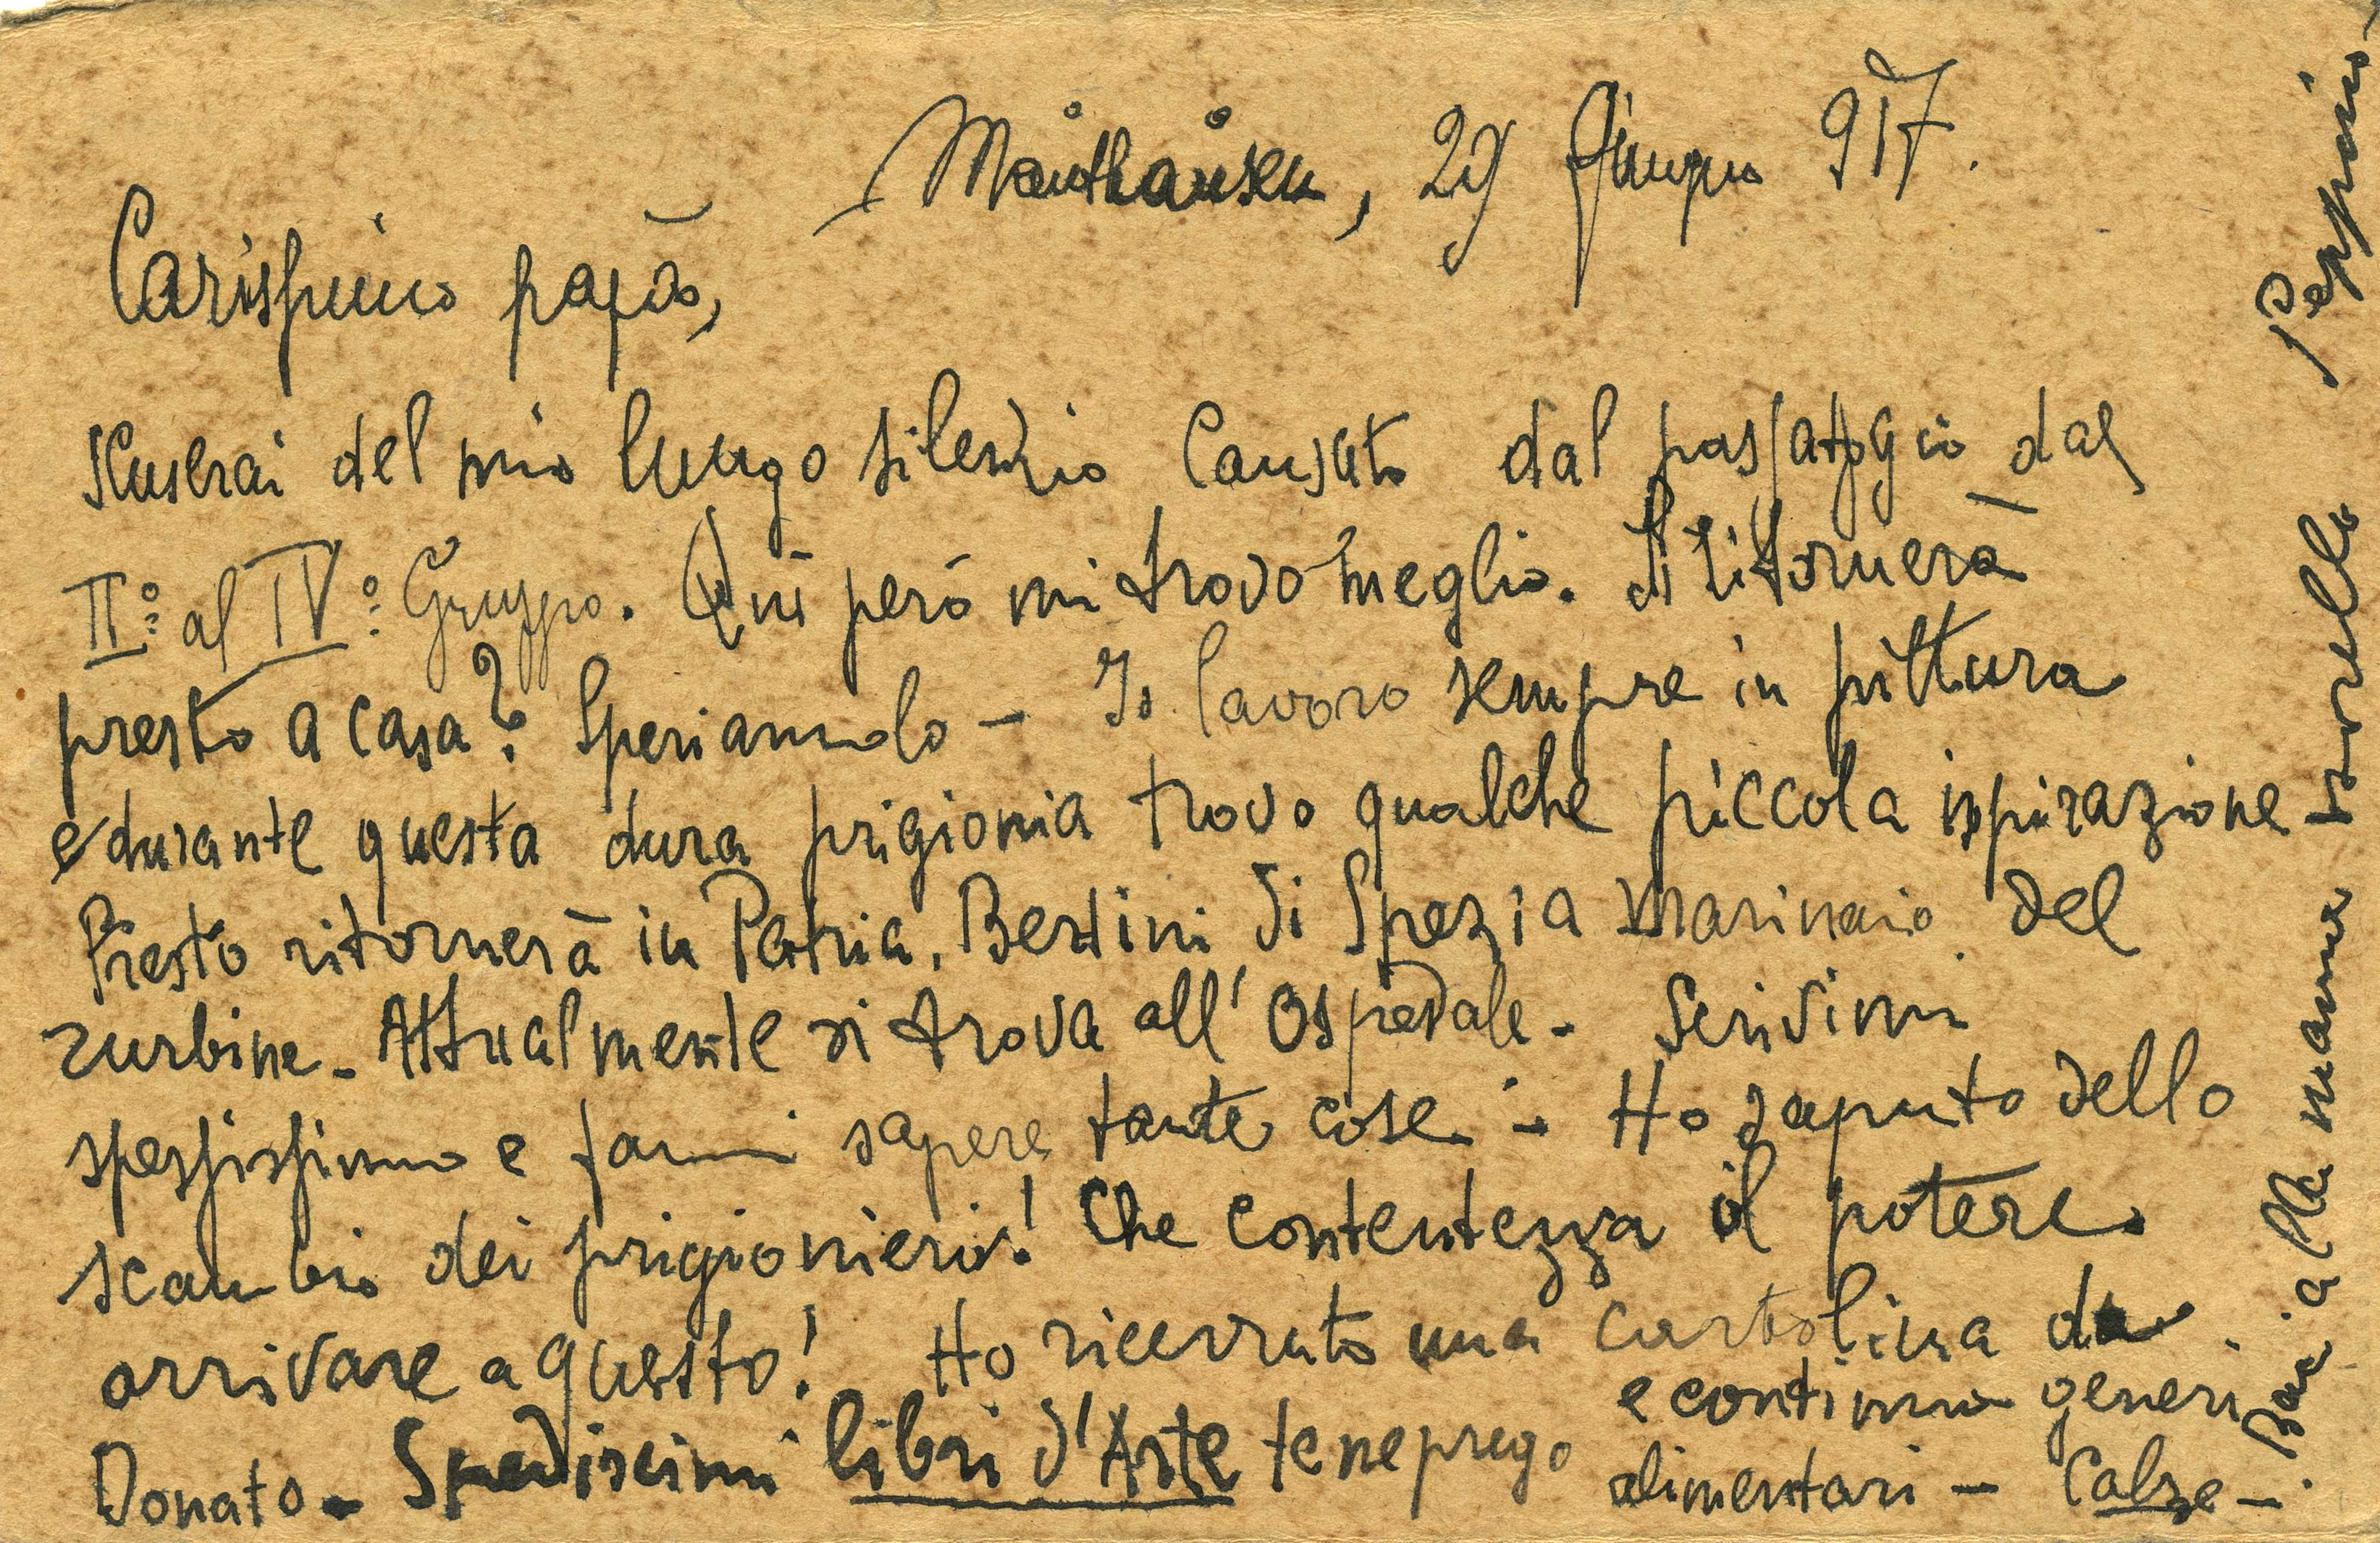 Mauthausen, 29 Giugno 917.
Carissimo papà,
Scuserai del mio lungo silenzio causato dal passaggio dal
II° al IV° Gruppo. Qui però mi trovo meglio. Si ritornerà
presto a casa? Speriamolo – Io lavoro sempre in pittura
e durante questa dura prigionia trovo qualche piccola ispirazione
Presto ritornerà in Patria, Bertini di Spezia marinaio del
Turbine – Attualmente si trova all'Ospedale – Scrivimi
spessissimo e fammi sapere tante cose – Ho saputo dello
scambio dei prigionieri! Che contentezza il potere
arrivare a questo! Ho ricevuto una cartolina da
Donato – Spediscimi libri d'Arte te ne prego
e continua generi
alimentari – Calze –
alla mamma sorelle
Peppino